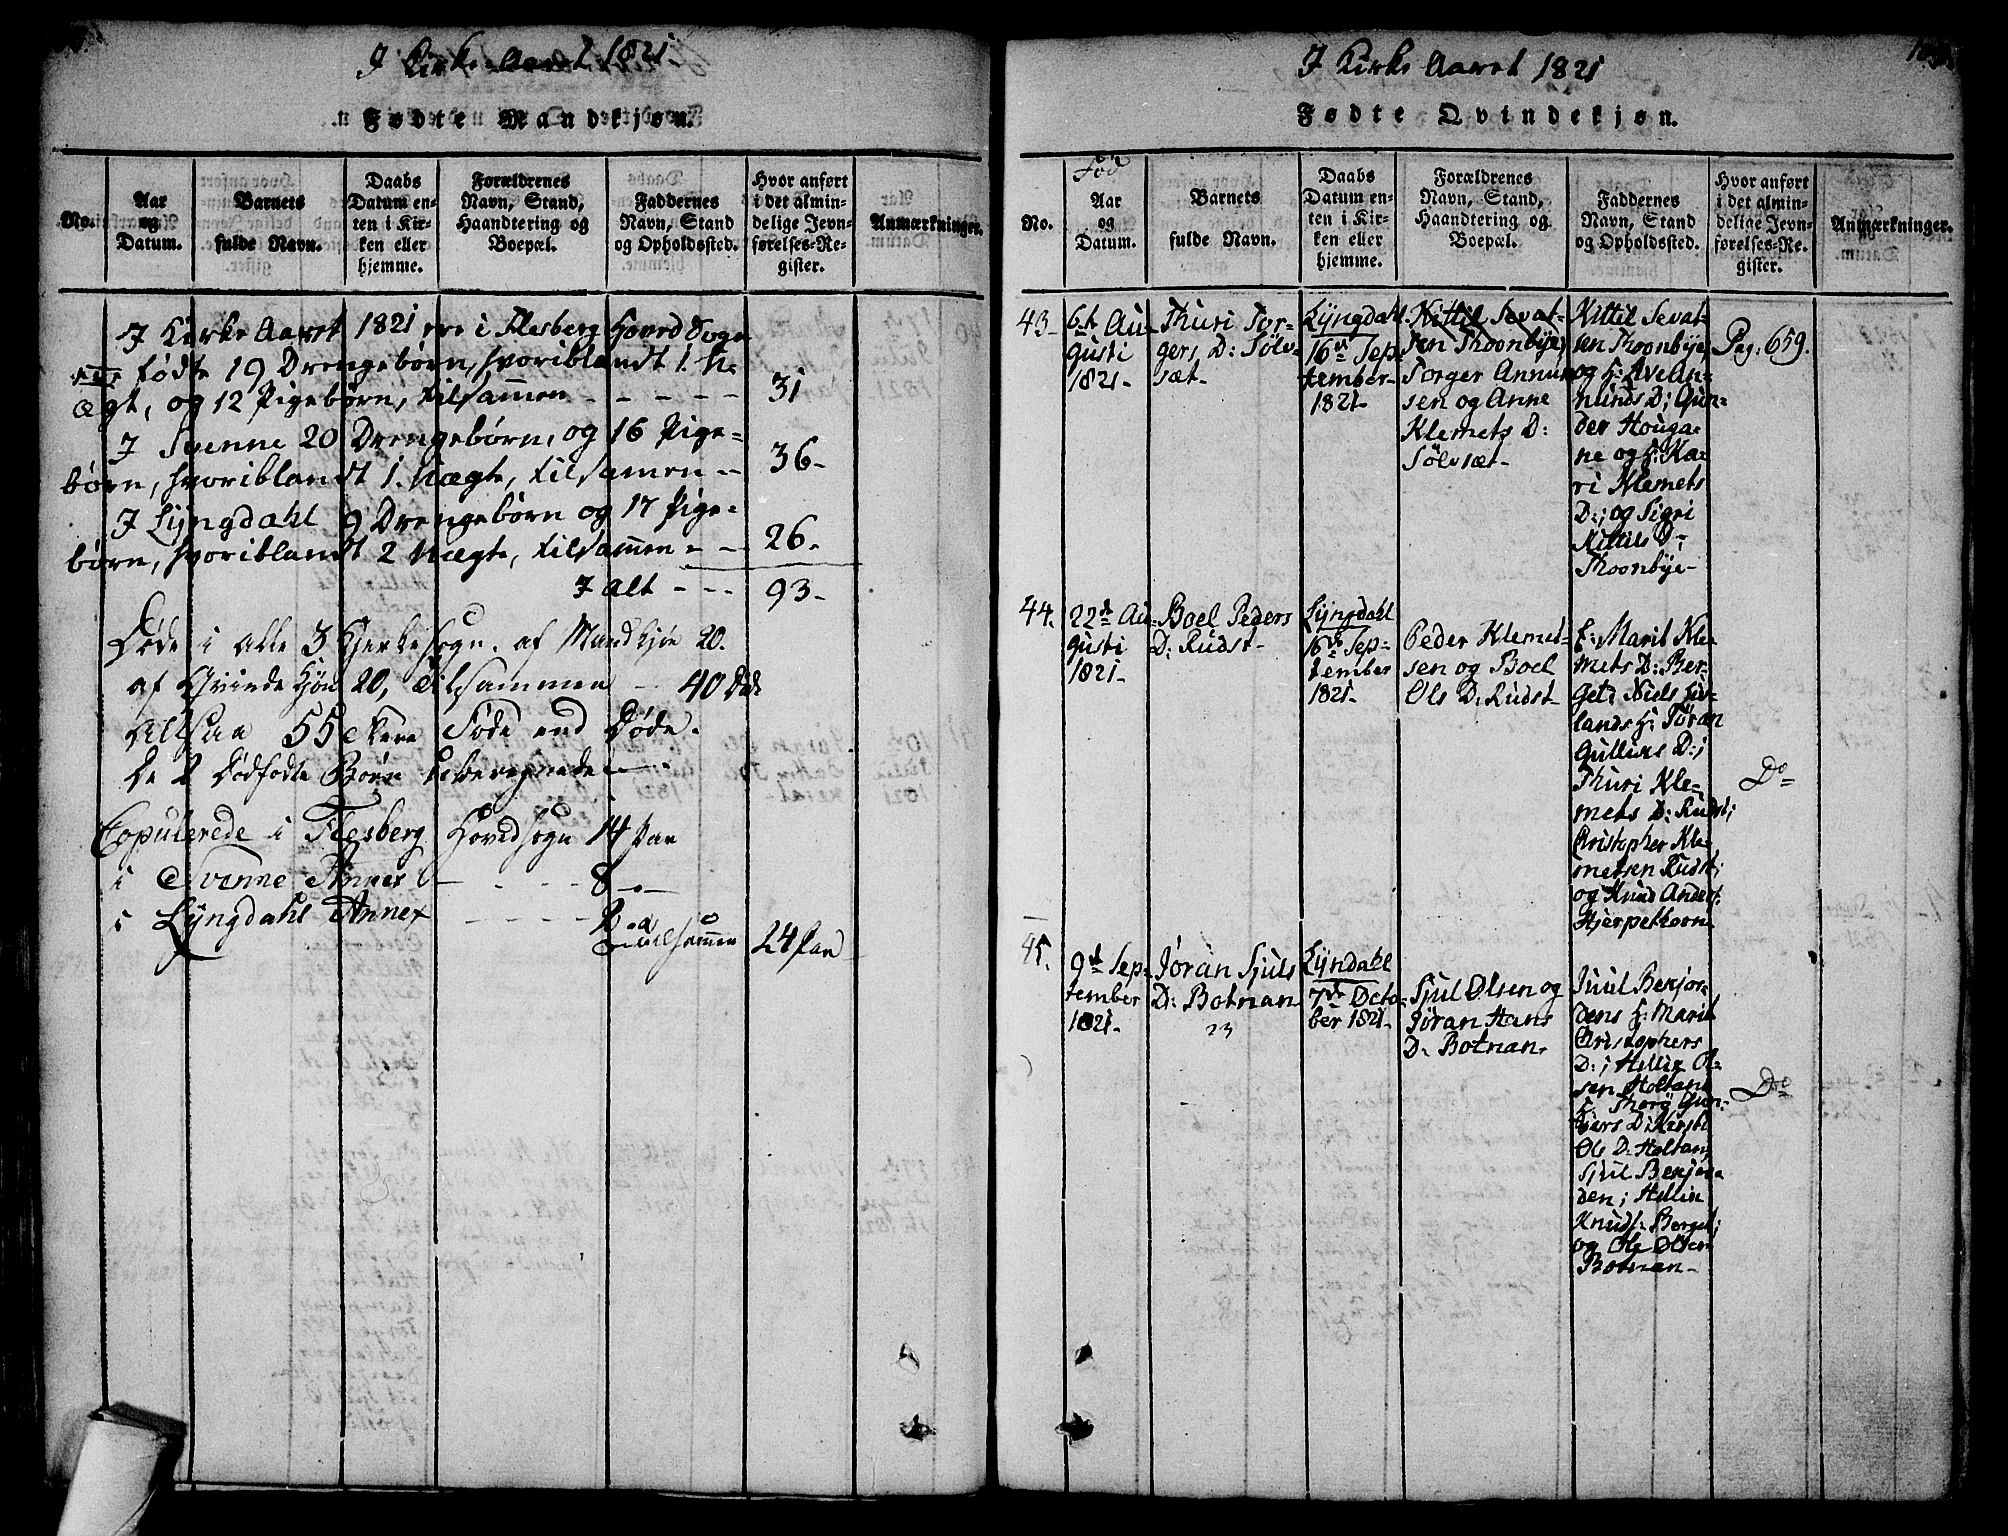 J Kirke Aaret 1821.
Fødte Mandkjøn.
No.
Aar
og
Datum.
Barnets
fulde Navn.
Daabs
Datum en-
ten i Kir-
ken eller
hjemme.
Forældrenes
Navn, Stand,
Haandtering og
Boepæl.
Faddernes
Navn, Stand
og Opholdssted.
Hvor anført
i det almin-
delige Jevn-
førelses-Re-
gister.
Anmærkninger.
J Kirke Aaret 1821 ere i Flesberg Hoved Sogn
fødte 19 Drengebørn, hvoriblandt 1. U-
ægt, og 12 Pigebørn, tilsammen - - - - - 31
J Svenne 20 Drengebørn, og 16 Pige=
børn, hvoriblandt 1. Uægte, tilsamen -- 36-
J Lyngdahl 9 Drengebørn og 17 Pige=
børn, hvoriblandt 2 Uægte, tilsammen - - 26-
J alt - - - 93-
Døde i alle 3 Kjerkesogn. af Mandkjøn 20.
af Qvindekjøn 20, tilsammen - 40 Døde
Altsaa 55 flere Føde end Døde.
De 2 Dødfødte Børn uberegnede
Copulerede i Flesberg Hovedsogn 14 Par
i Svenne Annex - - - - 8 -"-
i Lyngdahl Annex - - - - - 2 -"-
tilsammen 24 Par
J Kirke Aaret 1821
Fødte Qvindekjøn.
No.
Fød
Aar
og
Datum.
Barnets
fulde Navn.
Daabs
Datum en-
ten i Kir-
ken eller
hjemme.
Forældrenes
Navn, Stand,
Haandtering og
Boepæl.
Faddernes
Navn, Stand
og Opholdssted.
Hvor anført
i det almin-
delige Jevn-
førelses-Re-
gister.
Anmærkninger.
43-
6te Au-
gusti
1821-
Thuri Tor-
gers, D: Sølv-
sæt-
Lyngdahl
16de Sep-
tember-
1821-
Kittil Sevat-
sen Thoonbye,
Torger Annun
sen og Anne
Klemets D:
Sølvsæt-
Kittil Sevat-
sen Thoonbye
og K: Ave An-
nunds D; Gun-
der Houga-
ne og K: Ka-
ri Klemets
D:; og Sigri
Kittils D;
Thoonbye-
Pag: 659.
44.
22de Au-
gusti
1821-
Boel Peders
D: Rudst-
Lyngdahl
16de Sep-
tember
1821-
Peder Klemet-
sen og Boel
Ols D: Rudst-
E: Marit Kle-
mets D: Ber-
get; Niels
lands K: Jøran
Gulliks D:;
Thuri Kle-
mets D: Rudst;
Christopher Kle-
metsen Rudst;
og Knud Anders:
Hjerpekorn
Do
45.
9de Sep-
tember
1821-
Jøran Sjuls
D: Botnan
23
Lyndahl
7de Octo-
ber 1821-
Sjul Olsen og
Jøran Hans
D: Botnan.
Juul Benjor-
dens K: Marit
Christophers
D:; Hellie O-
sen Holtan
K: Thorø Gun-
vars D; Kirsti
Ols D: Holtan,
Sjul Benjor-
den; Hellin
Knuds: Berget;
og Ole Olsen
Botnan-
Do